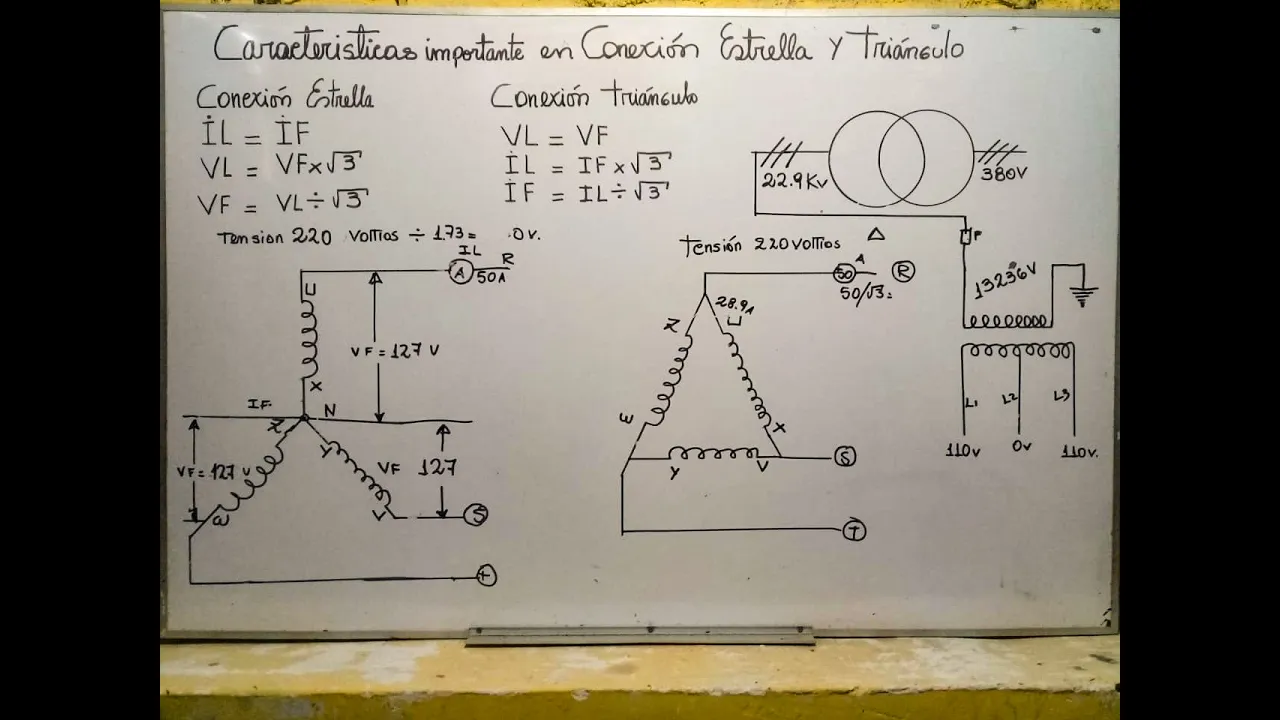 Caracteristicas importante en Conexión Estrella Y Triángulo
Conexión Estrella
İL = İF
VL = VF x √3
VF = VL ÷ √3
Tension 220 Voltios ÷ 1.73 = 0v.
IL
A
50A
R
U
VF = 127 V
X
IF.
N
Z
Y
VF = 127 V
VF 127
S
Conexión triángulo
VL = VF
İL = IF x √3
İF = IL ÷ √3
Tensión 220 Voltios Δ
50
A
R
50/√3 =
28.9A
Z
U
X
S
Y
V
T
22.9 Kv
380V
F
13236V
L1
L2
L3
110v
0v
110v.